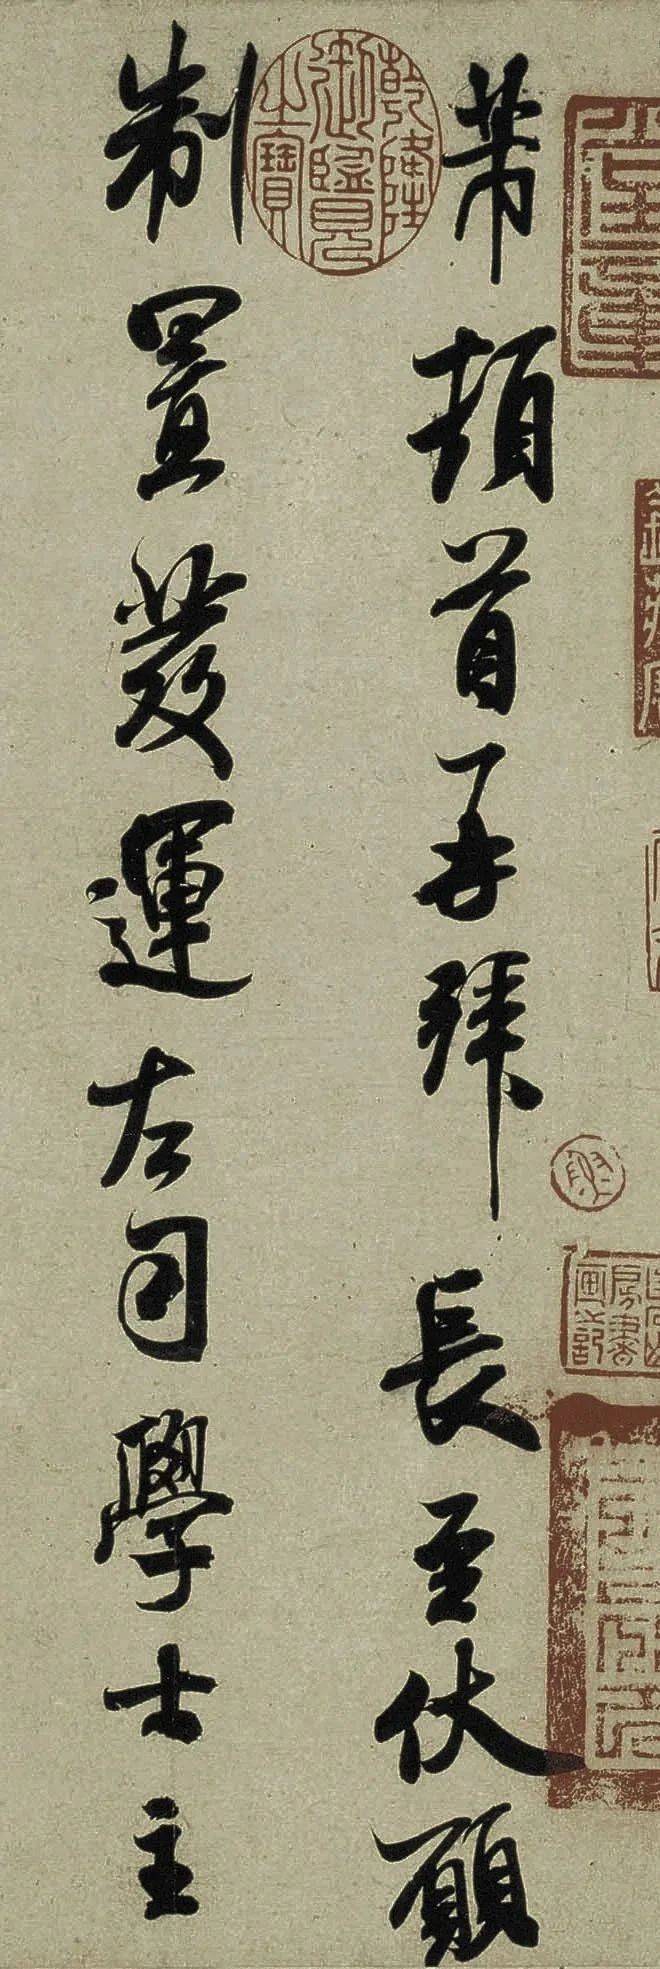 芾頓首再拜長至伏願
制置發運左司學士主
乾隆
御覽
之寶